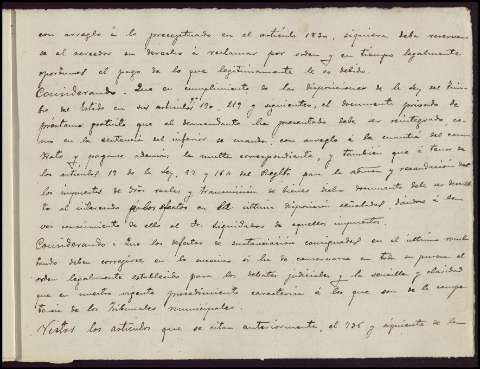 con arreglo á lo preceptuado en el artículo 1830, siquiera deba reservar-
se al acreedor su derecho á reclamar por orden y en tiempo legalmente
oportunos el pago de lo que legítimamente le es debido.
Considerando: Que en cumplimiento de las disposiciones de la ley del Tim-
bre del Estado en sus artículos 190. 219 y siguientes, el documento privado de
préstamo gratuito que el demandante ha presentado debe ser reintegrado, co-
mo en la sentencia del inferior se manda, con arreglo á la cuantía del con-
trato y pagarse además la multa correspondiente, y también que á tenor de
los artículos 19 de la ley, 92 y 164 del Reglto para la admon y recaudación de
los impuestos de dros reales y transmisión de bienes dicho documento debe ser
to al liquidador en última disposición señalada, dándose á
conocimiento de ello al Sr. Liquidador de aquellos impuestos.
Considerando: Que los defectos de sustanciación consignados en el último resul-
tando deben corregirse en lo sucesivo si ha de conservarse en toda su pureza el
orden legalmente establecido para los debates judiciales y la sencillez y claridad
que en nuestro vigente procedimiento caracteriza á los que son de la compe-
tencia de los Tribunales municipales.
Vistos los artículos que se citan anteriormente, el 736 y siguiente de la